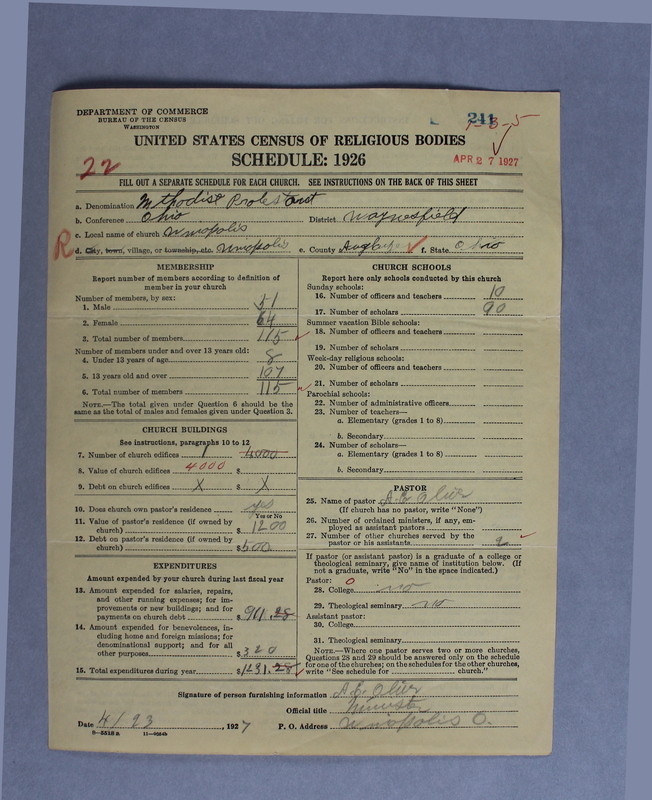 DEPARTMENT OF COMMERCE
BUREAU OF THE CENSUS
WASHINGTON
241
1-3-5
UNITED STATES CENSUS OF RELIGIOUS BODIES
SCHEDULE: 1926
22
APR 27 1927
FILL OUT A SEPARATE SCHEDULE FOR EACH CHURCH. SEE INSTRUCTIONS ON THE BACK OF THIS SHEET
a. Denomination Methodist Protestant
b. Conference Ohio District Waynesfield
c. Local name of church Uniopolis
R d. City, town, village, or township, etc. Uniopolis e. County Auglaize f. State Ohio
MEMBERSHIP
Report number of members according to definition of
member in your church
Number of members, by sex:
1. Male 51
2. Female 64
3. Total number of members 115
Number of members under and over 13 years old:
4. Under 13 years of age 8
5. 13 years old and over 107
6. Total number of members 115
NOTE.—The total given under Question 6 should be the
same as the total of males and females given under Question 3.
CHURCH BUILDINGS
See instructions, paragraphs 10 to 12
7. Number of church edifices 1 4000
8. Value of church edifices 4000 $
9. Debt on church edifices X $ X
10. Does church own pastor's residence yes
Yes or No
11. Value of pastor's residence (if owned by
church) $ 1200
12. Debt on pastor's residence (if owned by
church) $ 500
EXPENDITURES
Amount expended by your church during last fiscal year
13. Amount expended for salaries, repairs,
and other running expenses; for im-
provements or new buildings; and for
payments on church debt $ 911.28
14. Amount expended for benevolences, in-
cluding home and foreign missions; for
denominational support; and for all
other purposes $ 320
15. Total expenditures during year $ 1231.28
CHURCH SCHOOLS
Report here only schools conducted by this church
Sunday schools:
16. Number of officers and teachers 10
17. Number of scholars 90
Summer vacation Bible schools:
18. Number of officers and teachers
19. Number of scholars
Week-day religious schools:
20. Number of officers and teachers
21. Number of scholars
Parochial schools:
22. Number of administrative officers
23. Number of teachers—
a. Elementary (grades 1 to 8)
b. Secondary
24. Number of scholars—
a. Elementary (grades 1 to 8)
b. Secondary
PASTOR
25. Name of pastor A.E.
(If church has no pastor, write "None")
26. Number of ordained ministers, if any, em-
ployed as assistant pastors
27. Number of other churches served by the
pastor or his assistants 2
If pastor (or assistant pastor) is a graduate of a college or
theological seminary, give name of institution below. (If
not a graduate, write "No" in the space indicated.)
Pastor: 0
28. College no
29. Theological seminary no
Assistant pastor:
30. College
31. Theological seminary
NOTE.—Where one pastor serves two or more churches,
Questions 28 and 29 should be answered only on the schedule
for one of the churches; on the schedules for the other churches,
write "See schedule for church."
Signature of person furnishing information A.E.
Official title Minister
Date 4/23, 1927 P. O. Address Uniopolis O.
8-5518a 11-9264b